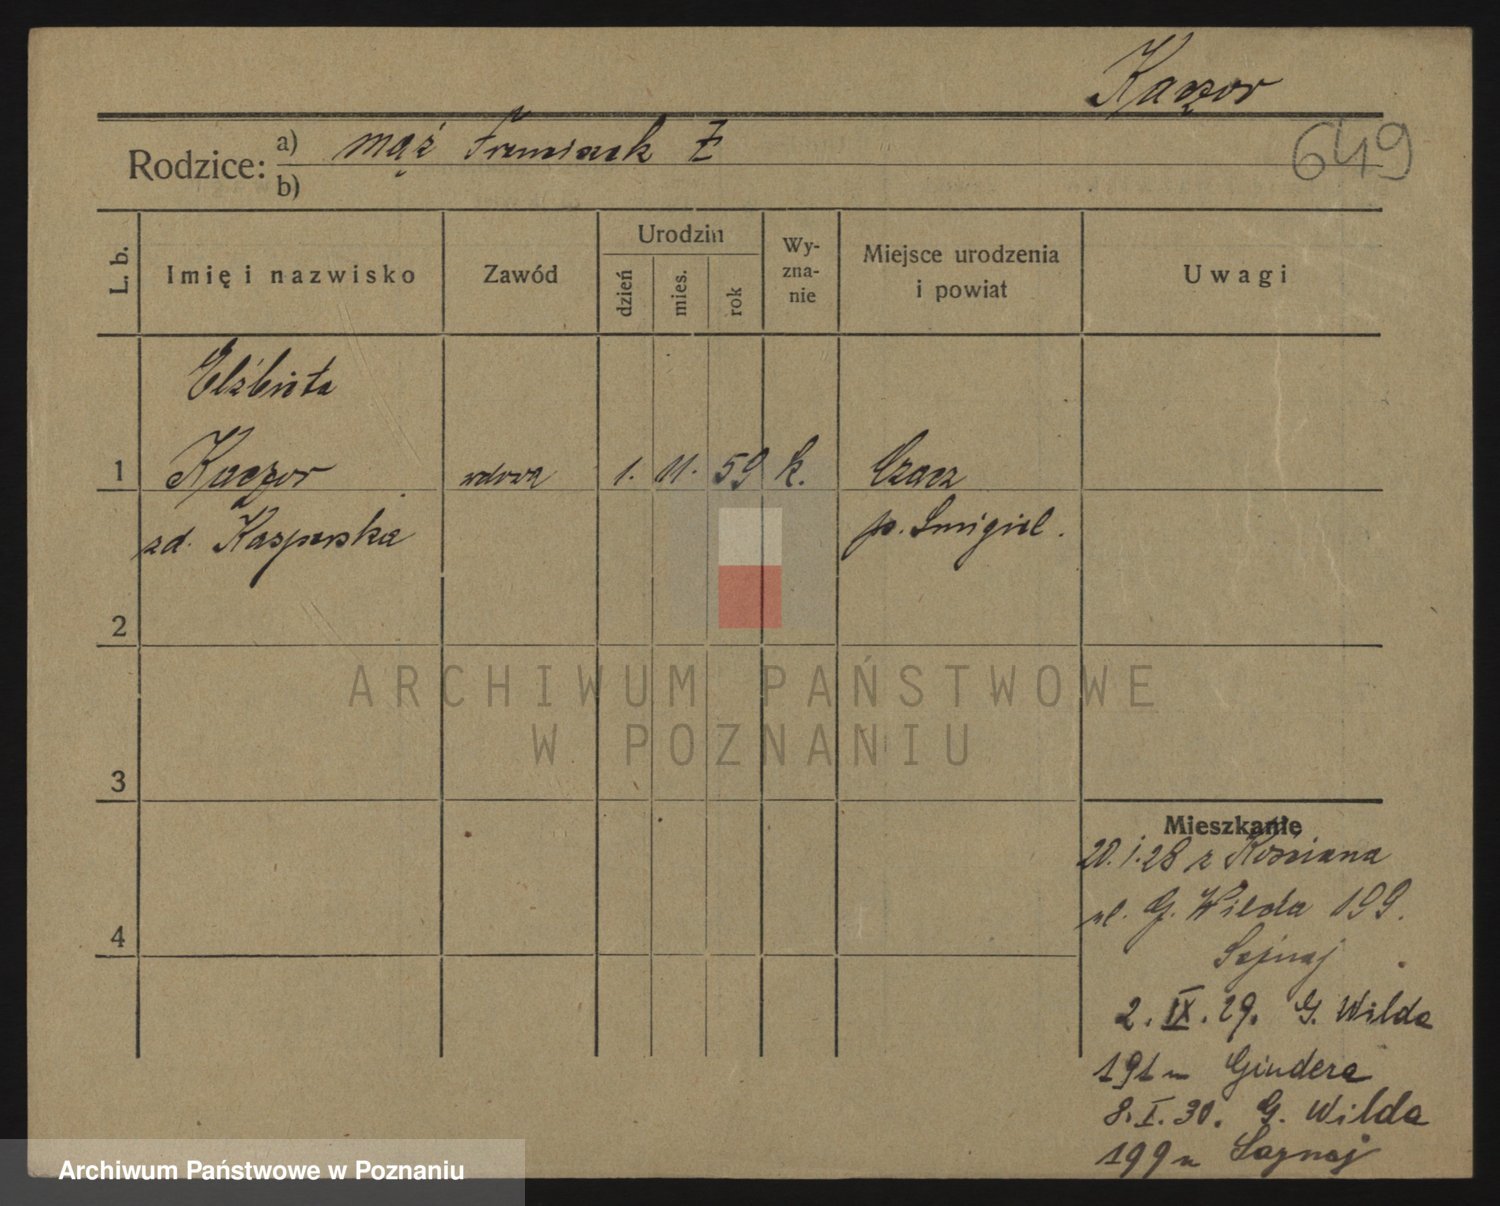 Kaczor
649
Rodzice: a) mąż Franciszek Ż
b)
L. b.
Imię i nazwisko
Zawód
Urodzin
dzień
mies.
rok
Wy-
zna-
nie
Miejsce urodzenia
i powiat
Uwagi
Elżbieta
1 Kaczor wdowa 1. 11. 59 k. Czacz
zd. Kasperska p. Śmigiel.
2
3
4
ARCHIWUM PAŃSTWOWE
W POZNANIU
Mieszkanie
20.1.28 z Kościana
ul. G. Wilda 199.
2. IX. 29. G. Wilda
191 u Gindera
8.I.30. G. Wilda
199 u
Archiwum Państwowe w Poznaniu